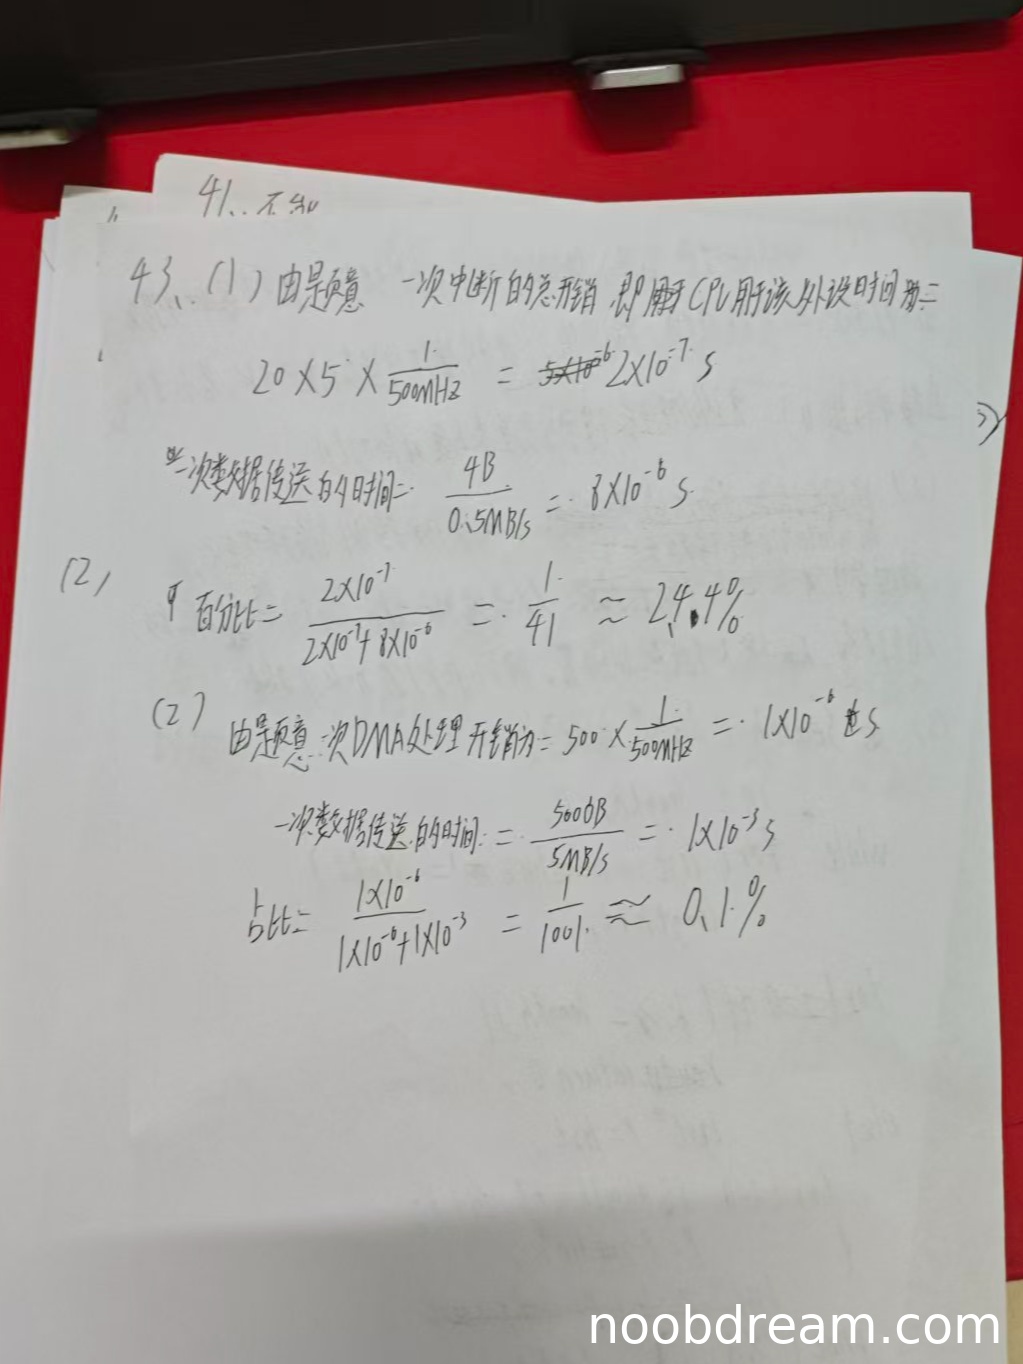 41、不
43、(1) 由题意 一次中断的总开销,即 CPU用于该外设时间为=
20×5×1/500MHz = 5×10⁻⁶ 2×10⁻⁷ s
一次数据传送的时间= 4B/0.5MB/s = 8×10⁻⁶ s
(2)
百分比= 2×10⁻⁷/2×10⁻⁷+8×10⁻⁶ = 1/41 ≈ 24.4%
(2) 由题意一次DMA处理开销为= 500×1/500MHz = 1×10⁻⁶ s
一次数据传送的时间= 5000B/5MB/s = 1×10⁻³ s
占比= 1×10⁻⁶/1×10⁻⁶+1×10⁻³ = 1/1001 ≈ 0.1%
noobdream.com